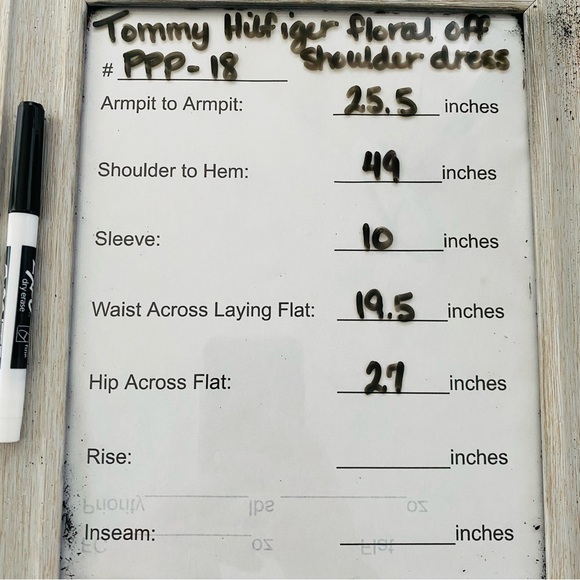 Tommy Hilfiger floral off
# PPP-18 shoulder dress
Armpit to Armpit: 25.5 inches
Shoulder to Hem: 49 inches
Sleeve: 10 inches
Waist Across Laying Flat: 19.5 inches
Hip Across Flat: 27 inches
Rise: inches
Priority lbs oz
Inseam: inches
FC oz Flat
dry erase